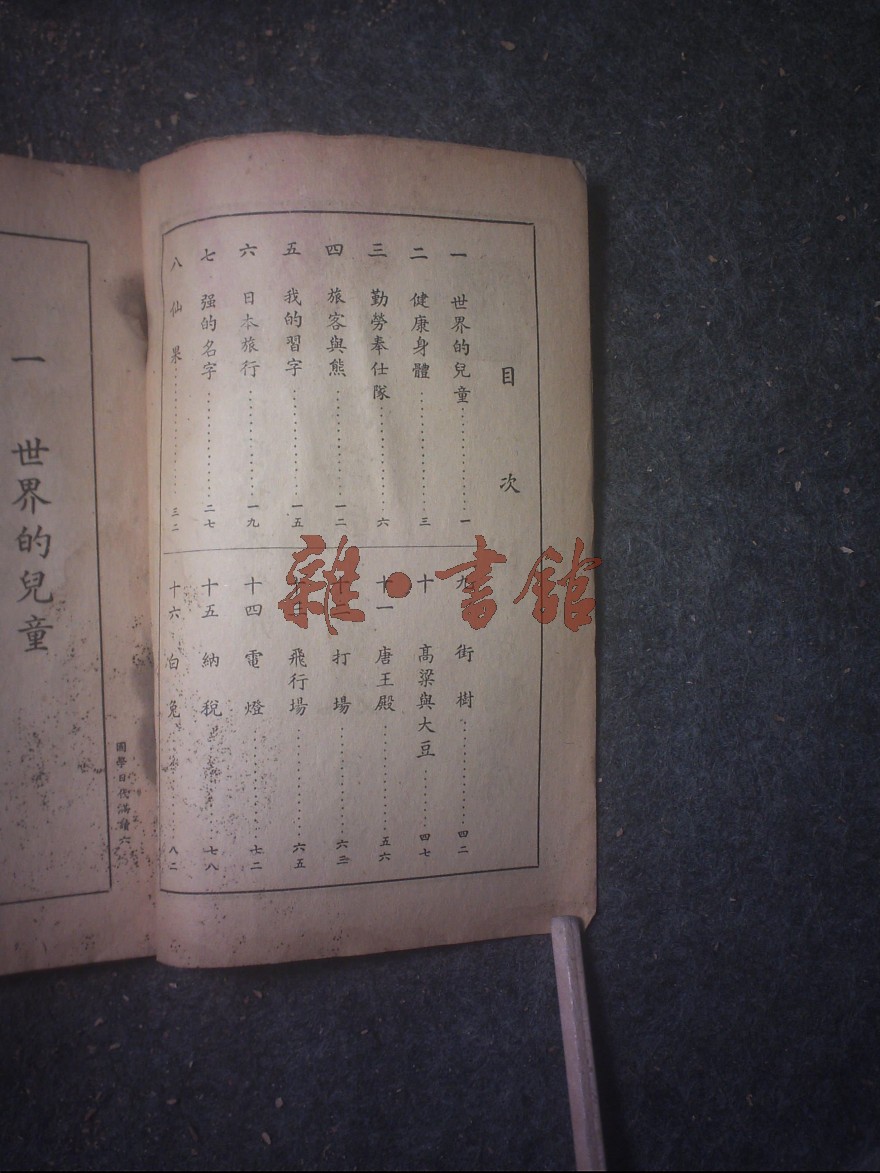 目次
一 世界的兒童 一
二 健康身體 三
三 勤勞奉仕隊 六
四 旅客與熊 一二
五 我的習字 一五
六 日本旅行 一九
七 强的名字 二七
八 仙果 三二
九 街樹 四二
十 高粱與大豆 四七
十一 唐王殿 五六
十二 打場 六三
十三 飛行場 六五
十四 電燈 七二
十五 納稅 七八
十六 白兔 八二
一 世界的兒童
雜·書館